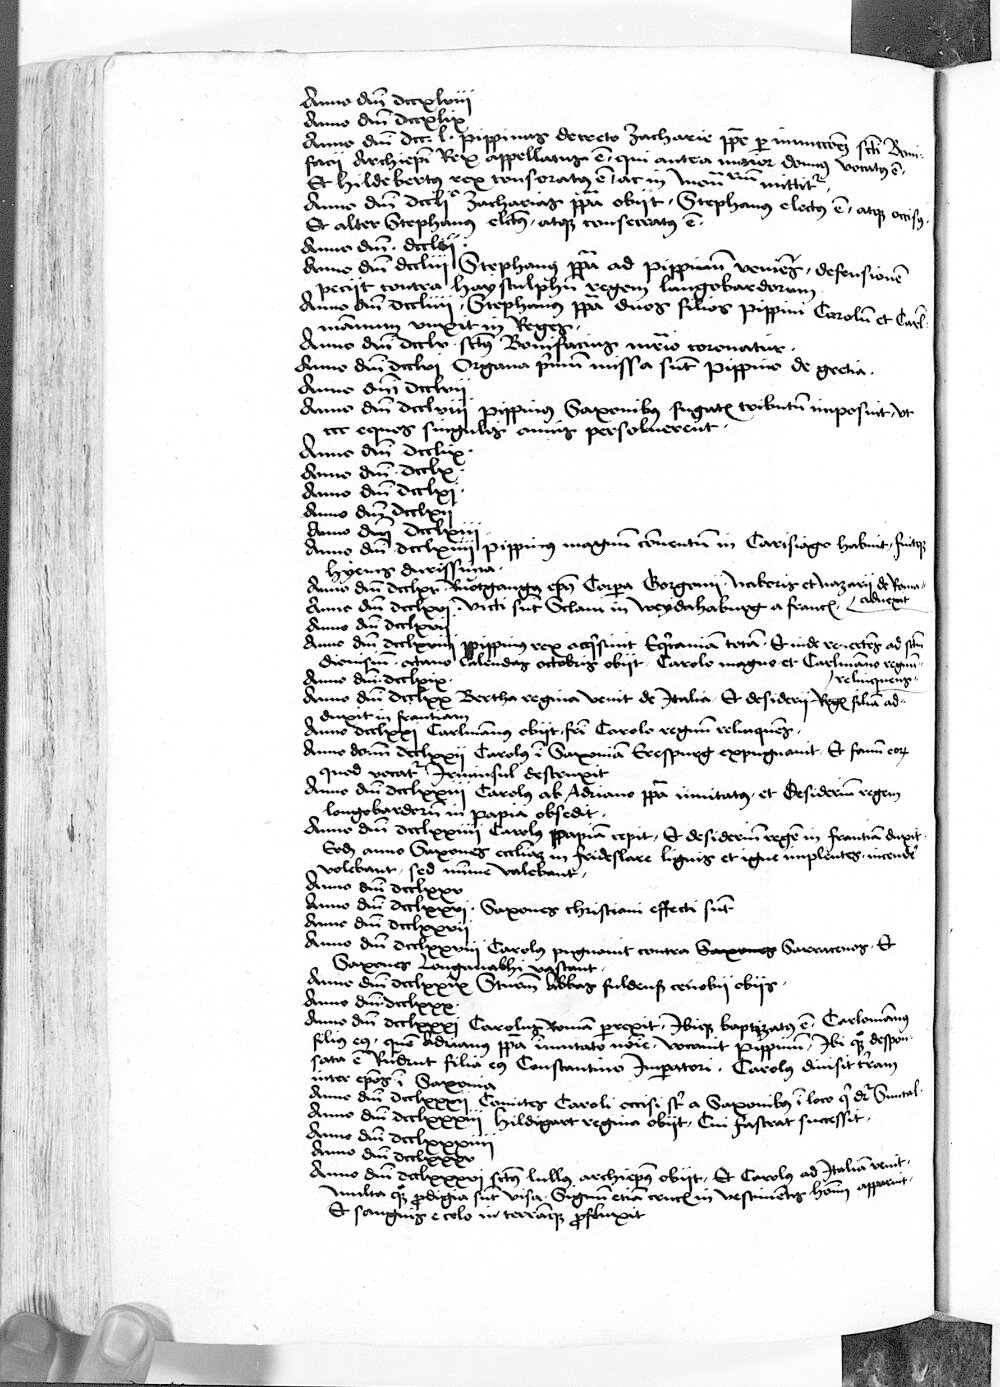 Anno dñi dccxlviii
Anno dñi dccxlix
Anno dñi dcc. l. pippinus decreto zacharie ppe per inuncconē scti Boni-
facii Archiepi Rex appellatus ē. qui antea maior domus vocatus ē.
Et hildebertus rex tonsoratus ē. ac in mittitr.
Anno dñi dccli zacharias ppa obijt. Stephanus electus ē. atqz occisus.
Et alter Stephanus elctus. atqz consecratus ē.
Anno dñi. dcclii.
Anno dñi dccliii Stephanus ppa ad pippinum veniēs. defensionē
petijt contra haystulphū regem langobardorum
Anno dñi dccliiii. Stephanus ppa duos filios pippini Carolū et Carl-
mannum vnxit in Reges.
Anno dñi dcclv sctus Bonifacius mrio coronatur.
Anno dñi dcclvi Organa primū missa sunt pippino de grecia.
Anno dñi dcclvii
Anno dñi dcclviii pippinus Saxonibus fugatis tributū imposuit, vt
ccc equos singulis annis persoluerent.
Anno dñi dcclix.
Anno dñi dcclx.
Anno dñi dcclxi.
Anno dñi dcclxii
Anno dñi dcclxiii
Anno dñi dcclxiiii pippinus magnū conuentū in Carisiago habuit, fuitqz
hyems durissima.
Anno dñi dcclxv Ruotgangus eps Corpora Gorgonii. Naboris et Nazarii de Roma
aduexit
Anno dñi dcclxvi. Victi sūt Sclaui in weydahaburg a francis.
Anno dñi dcclxvii
Anno dñi dcclxviii pippinus rex acqsiuit Eqtaniā totā. Et inde reuertēs ad sctm
dionisiū. octauo kalendas octobris obijt. Carolo magno et Carlmāno regnū
relinquens.
Anno dñi dcclxix.
Anno dñi dcclxx Bertha regina venit de Italia. Et desiderij Regis filiā ad-
duxit in franciam
Anno dcclxxi Carlmānus obijt. fri Carolo regnū relinquēs.
Anno domi dcclxxii Carolus ī Saxoniā Erespurg expugnauit. Et fanū eorz
quod vocatr Irminsul destruxit
Anno dñi dcclxxiii Carolus ab Adriano ppa inuitatus. et Desideriū regem
longobardorū in papia obsedit.
Anno dñi dcclxxiiii Carolus papiā cepit. Et desideriū regē in franciā duxit.
Eodē anno Saxones eccliaz in frideslare lignis et igne implentes. incendē
volebant. sed minime valebant.
Anno dñi dcclxxv
Anno dñi dcclxxvi. Saxones christiani effecti sūt
Anno dñi dcclxxvii
Anno dñi dcclxxviii Carolus pugnauit contra Saxones Sarracenos. Et
Saxones vastant.
Anno dñi dcclxxix Sturm Abbas fuldens cenobii obijt.
Anno dñi dcclxxx.
Anno dñi dcclxxxi Carolus Romā perrexit. Ibiqz baptizatus ē. Carlomānus
filius eius. quē Adrianus ppa imutato nōie. vocauit pippinū. Ibi qz despon-
sata ē Rudrut filia eius Constantino Imperatori. Carolus diuisit trram
inter epos ī Saxonia
Anno dñi dcclxxxii Comites Caroli occisi st a Saxonibus ī loco q dr Suntal.
Anno dñi dcclxxxiii hildigart regina obijt. Cui fastrat successit.
Anno dñi dcclxxxiiii
Anno dñi dcclxxxv
Anno dñi dcclxxxvi sctus lullus archieps obijt. Et Carolus ad Italiā venit.
multa qz prodigia sūt visa. Signū etiā crucis in vestimentis hoīm apparuit.
Et sanguis e celo in terramqz profluxit